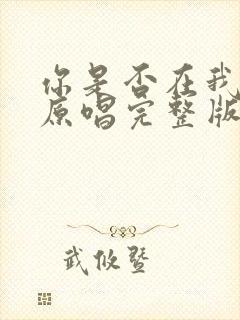 你是否在我
原唱完整版
武攸暨